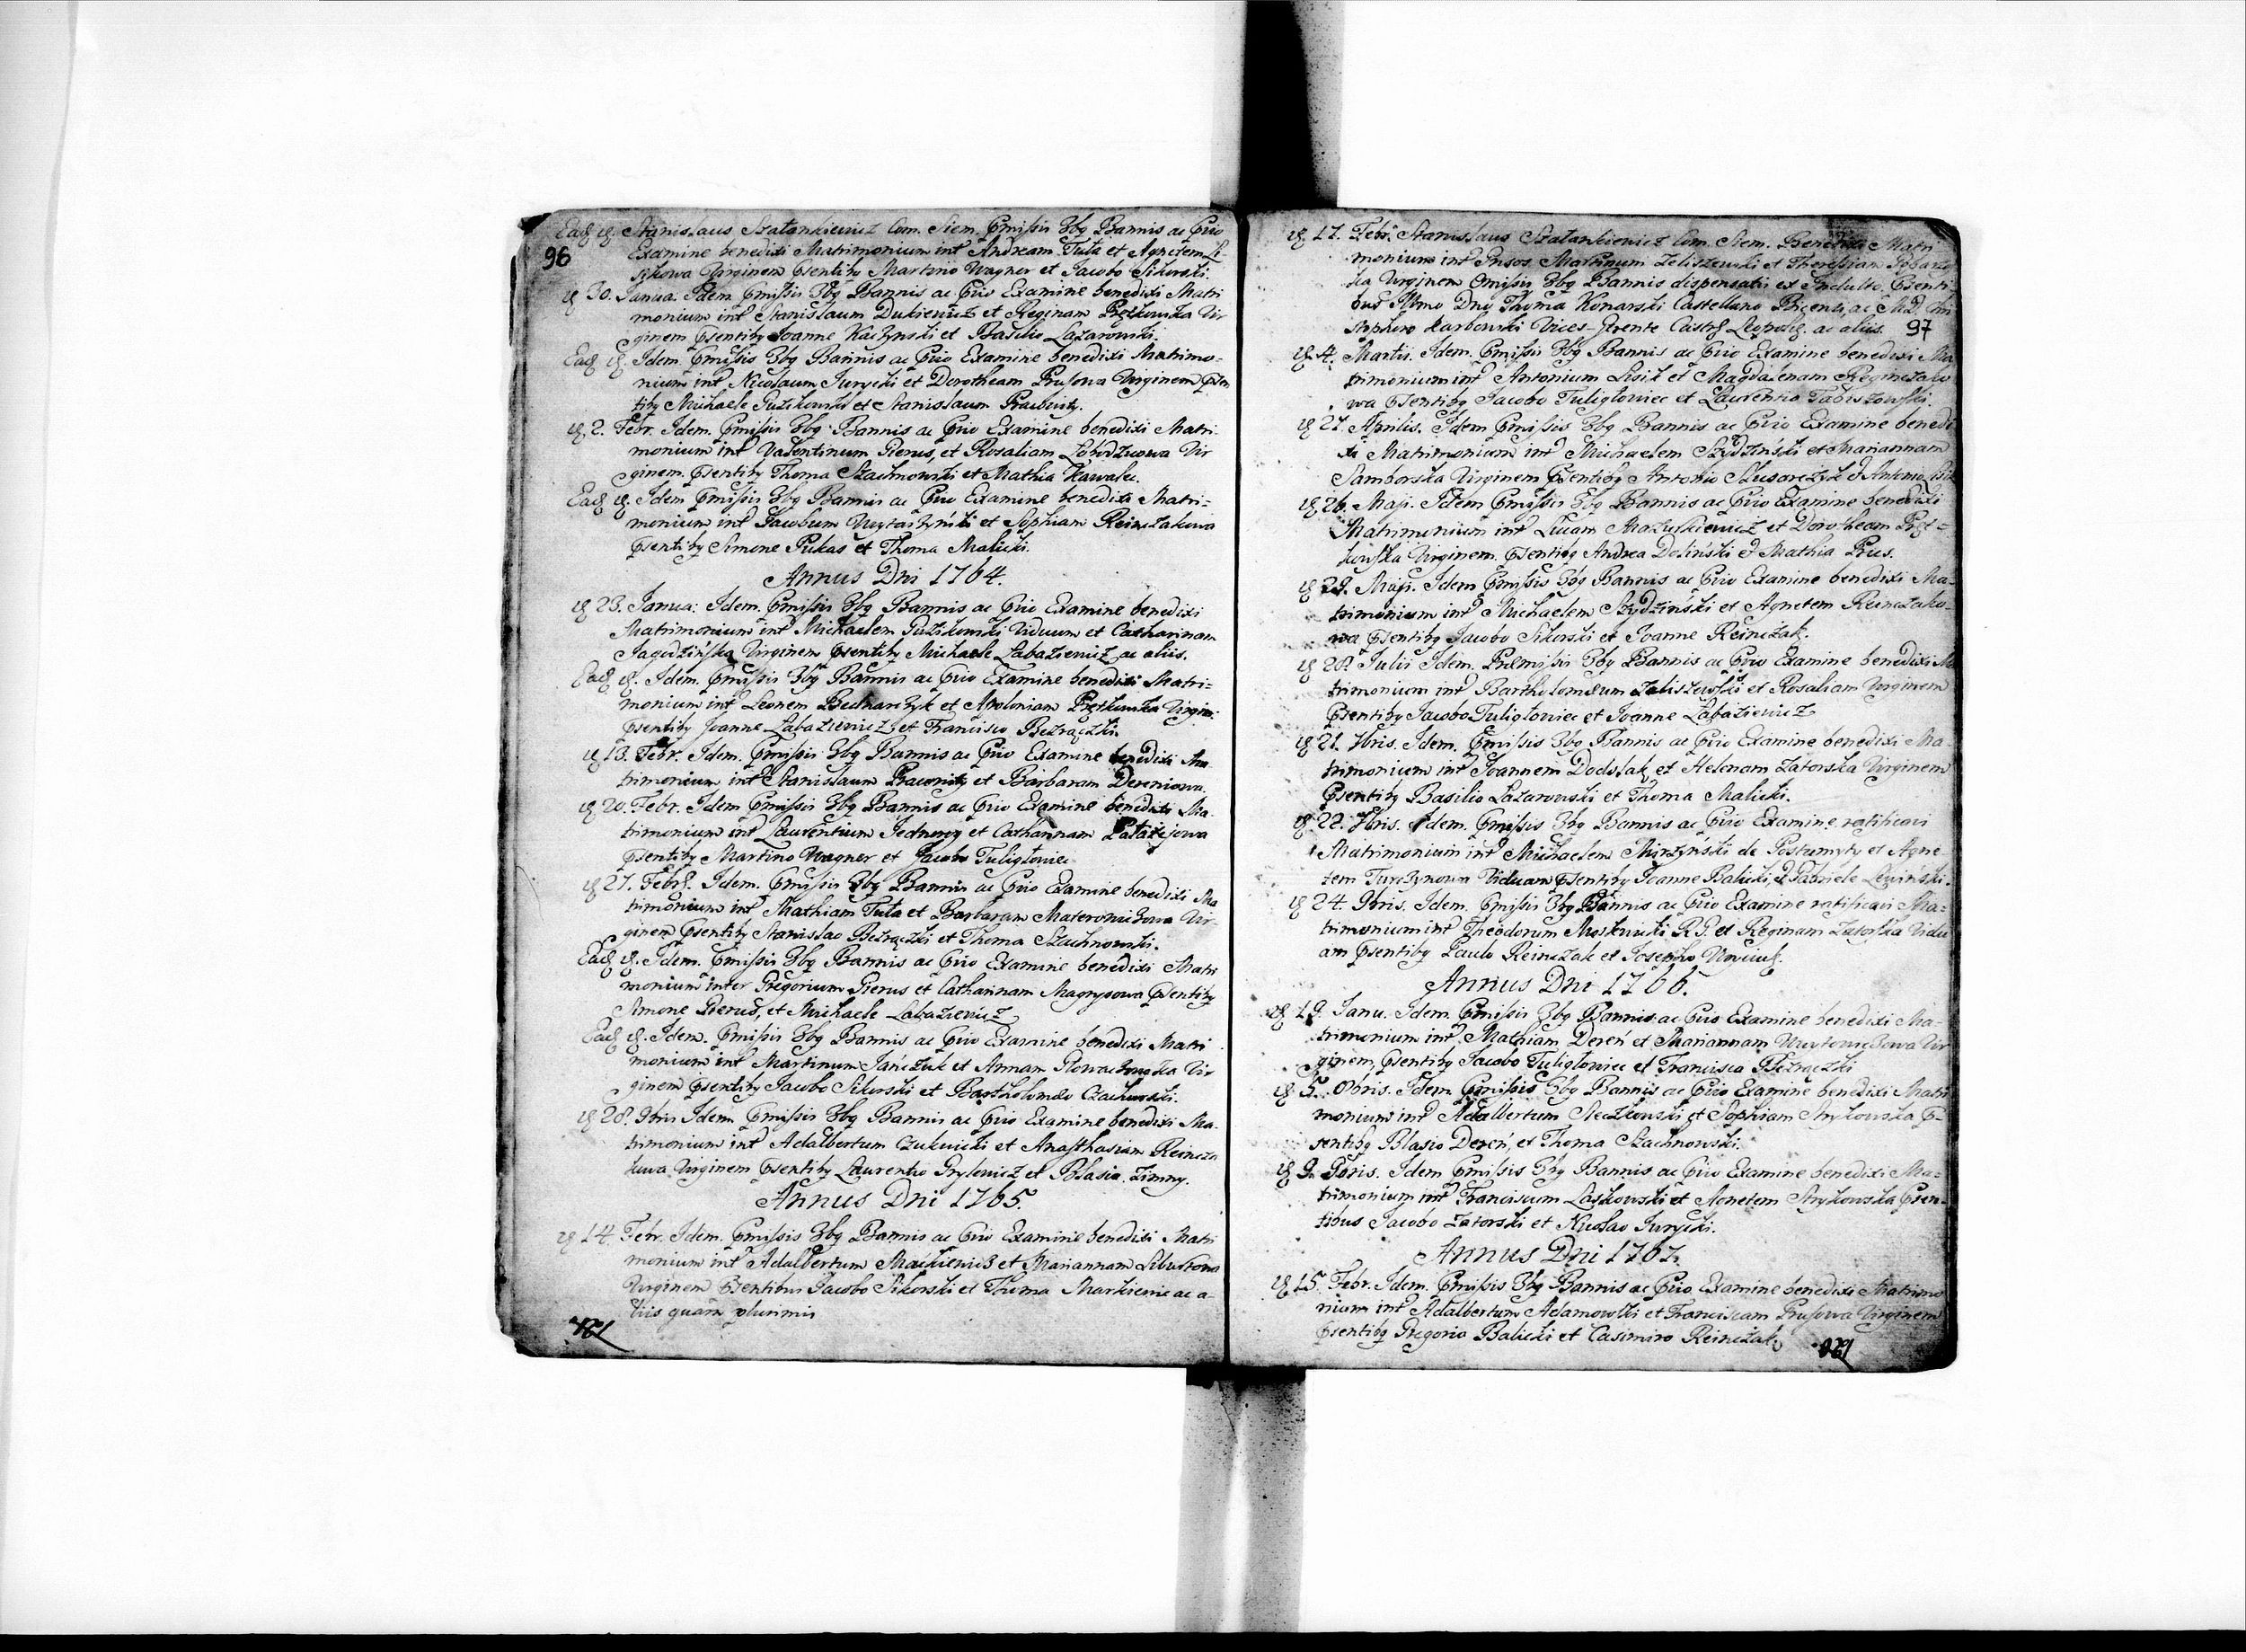 96
Ead d. Stanislaus Szatankiewicz Com. Siem. Pmissis 3bg Bannis ac Pvio
Examine benedixi Matrimonium int Andream Tuta et Agnetem Li
sikowa Virginem Psentibg Martino Wagner et Jacobo Sikorski.
d 30. Janua: Idem Pmissis 3bg Bannis ac Pvio Examine benedixi Matri
monium int Stanislaum Dukiewicz et Reginam Prętkowska Vir
ginem Psentibg Joanne Kaczynski et Basilio Lazarowski.
Ead d. Idem Pmissis 3bg Bannis ac Pvio Examine benedixi Matrimo-
nium int Nicolaum Jurycki et Dorotheam Prusowa Virginem Psen
tibg Michaele Puzikowski et Stanislaum
d 2. Febr. Idem. Pmissis 3bg Bannis ac Pvio Examine benedixi Matri
monium int Valentinum Pierus, et Rosaliam Vir
ginem Psentibg Thoma Szachnowski et Mathia Kawalec.
Ead d. Idem Pmissis 3bg Bannis ac Pvio Examine benedixi Matri=
monium int Jacobum et Sophiam Reinczakowa
Psentibg Simone Pukas et Thoma Malicki.
Annus Dni 1764.
d 23. Janua: Idem. Pmissis 3bg Bannis ac Pvio Examine benedixi
Matrimonium int Michaelem Puzikowski Viduum et Catharinam
Jagodzińska Virginem Psentibg Michaele Labaziewicz ac aliis.
Ead d. Idem. Pmissis 3bg Bannis ac Pvio Examine benedixi Matri=
monium int Leonem Bednarczyk et Apoloniam Prętkowska Virgin:
Psentibg Joanne Labaziewicz et Francisco Bezrączki.
d 13. Febr. Idem. Pmissis 3bg Bannis ac Pvio Examine benedixi Ma
trimonium int Stanislaum Pracowity et Barbaram Dereniowa.
d 20. Febr. Idem Pmissis 3bg Bannis ac Pvio Examine benedixi Ma
trimonium int Laurentium Jednorog et Catharinam
Psentibg Martino Wagner et Jacobo Tuligłowiec
d 27. Febr. Idem. Pmissis 3bg Bannis ac Pvio Examine benedixi Ma
trimonium int Mathiam Tuta et Barbaram Vir
ginem Psentibg Stanislao Bezrączki et Thoma Szachnowski.
Ead d. Idem. Pmissis 3bg Bannis ac Pvio Examine benedixi Matri
monium inter Gregorium Pierus et Catharinam Magrysowa Psentibg
Simone Pierus, et Michaele Labaziewicz
Ead d. Idem. Pmissis 3bg Bannis ac Pvio Examine benedixi Matri
monium int Martinum Jańczuk et Annam Vir
ginem Psentibg Jacobo Sikorski et Bartholomeo
d 28. 9bris Idem Pmissis 3bg Bannis ac Pvio Examine benedixi Ma
trimonium int Adalbertum et Anasthasiam Reincza
kowa Virginem Psentibg Laurentio Grylewicz et Blasio Zimny.
Annus Dni 1765.
d 14. Febr. Idem. Pmissis 3bg Bannis ac Pvio Examine benedixi Matri
monium int Adalbertum Maćkiewicz et Mariannam
Virginem Psentibus Jacobo Sikorski et Thoma ac a-
liis quam plurimis
d 17. Febr. Stanislaus Szatankiewicz Com. Siem. Benedixi Matri
monium int Gnsos. Martinum Zeliszewski et Theressiam
ska Virginem Omissis 3bg Bannis dispensatis ex Indulto, Psenti
bus Illmo Dno Thoma Konarski Castellano ac MD. Chri
stophoro Karbowski Vices-Grente Castr Leopol ac aliis.
97
d 4. Martii. Idem. Pmissis 3bg Bannis ac Pvio Examine benedixi Ma
trimonium int Antonium Lisik et Magdalenam Reginczako
wa Psentibg Jacobo Tuligłowiec et Laurentio
d 21. Aprilis. Idem Pmissis 3bg Bannis ac Pvio Examine benedi
xi Matrimonium int Michaelem Szydziński et Mariannam
Samborska Virginem Psentibg Antonio Slusarczyk et Antonio
d 26. Maji. Idem Pmissis 3bg Bannis ac Pvio Examine benedixi
Matrimonium int Lucam et Dorotheam Pręt=
kowska Virginem. Psentibg Andrea Doliński et Mathia Prus.
d 29. Maji. Idem Pmissis 3bg Bannis ac Pvio Examine benedixi Ma=
trimonium int Michaelem Szydziński et Agnetem Reinczako-
wa Psentibg Jacobo Sikorski et Joanne Reinczak.
d 28. Julii Idem. Præmissis 3bg Bannis ac Pvio Examine benedixi Ma
trimonium int Bartholomæum Zeliszewski et Rosaliam Virginem
Psentibg Jacobo Tuligłowiec et Joanne Labaziewicz
d 21. 7bris. Idem. Pmissis 3bg Bannis ac Pvio Examine benedixi Ma-
trimonium int Joannem et Helenam Zatorska Virginem
Psentibg Basilio Lazarowski et Thoma Malicki.
d 22. 7bris. Idem. Pmissis 3bg Bannis ac Pvio Examine ratificavi
Matrimonium int Michaelem Mirzynski de Postumyty et Agne
tem Turczynowa Viduam Psentibg Joanne Balicki, et Gabriele Lewinski.
d 24 9bris. Idem. Pmissis 3bg Bannis ac Pvio Examine ratificavi Ma=
trimonium int Theodorum Moskwicki R.G. et Reginam Zatorska Vidu
am Psentibg Paulo Reinczak et Josepho
Annus Dni 1766.
d 19. Janu. Idem. Pmissis 3bg Bannis ac Pvio Examine benedixi Ma-
trimonium int Mathiam Dereń et Mariannam Vir
ginem, Psentibg Jacobo Tuligłowiec et Francisco Bezrączki
d 5. 8bris. Idem. Pmissis 3bg Bannis ac Pvio Examine benedixi Matri
monium int Adalbertum et Sophiam Strykowska P-
sentibg Blasio Dereń, et Thoma Szachnowski.
d 9. 9bris. Idem Pmissis 3bg Bannis ac Pvio Examine benedixi Ma=
trimonium int Franciscum Laskowski et Agnetem Strykowska Psen-
tibus Jacobo Zatorski et Nicolao Jurycki.
Annus Dni 1767.
d 15. Febr. Idem. Pmissis 3bg Bannis ac Pvio Examine benedixi Matrimo
nium int Adalbertum Adamowski et Franciscam Prusowa Virginem
Psentibg Gregorio Balicki et Casimiro Reinczak